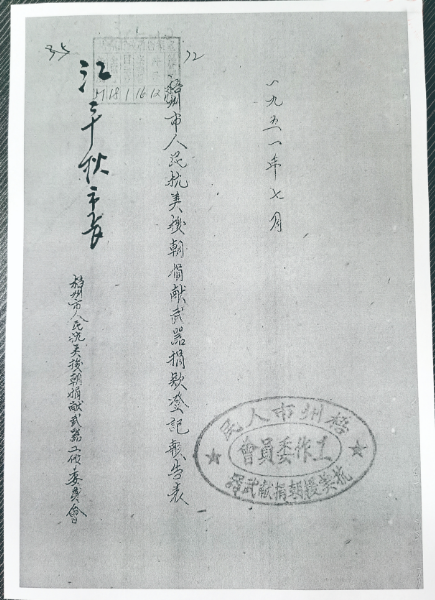 一九五一年七月
32
梧州市人民抗美援朝捐献武器捐款登記報告表
35
17 18 1 16 12
江平秋市長
梧州市人民抗美援朝捐献武器工作委員會
梧州市人民
工作委員會
抗美援朝捐献武器